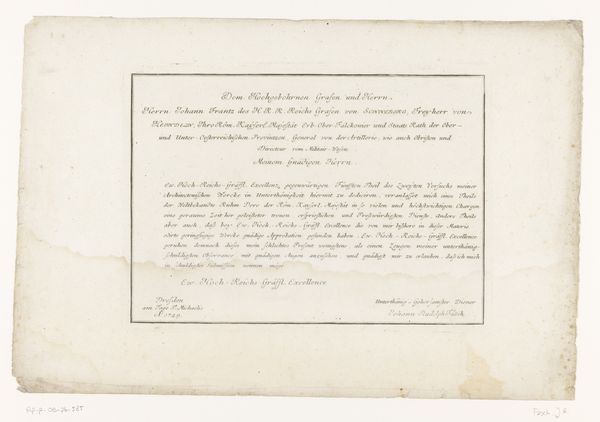 Dem Hochgebohrnen Grafen und Herrn.
Herrn Johann Frantz des H. R. R. Reichs Grafen von SONNENBERG, Freyherr von
Ihro Röm. Kayserl. Majestät Erb-Ober-Falckonier und Staats Rath der Ober-
und Unter-Oesterreichischen Provintzen, General von der Artillerie, wie auch Obristen und
Directeur vom Militair-Wesen
Meinem Gnädigen Herrn.
Ew. Hoch-Reichs-Gräffl. Excellenz, gegenwärtigen Fünften Theil des Zweyten Versuchs meiner
Architectonischen Wercke in Unterthänigkeit hiermit zu dediciren, veranlasset mich eines Theils
der Weltbekandte Ruhm Dero der Röm. Kayserl. Majestät in so vielen und höchstwichtigen Chargen
eine geraume Zeit her geleisteter treuen erspriesslichen und Dienste, andern Theils
aber auch, daß bey Ew. Hoch. Reichs-Gräffl. Excellence die von mir bißhero in dieser Materie
geringfügige Wercke gnädige Approbation gefunden haben. Ew. Hoch-Reichs-Gräffl. Excellence
geruhen demnach dieses mein schlechtes Present wenigstens als einen Zeugen meiner unterthänig-
schuldigsten Observance mit gnädigen Augen anzusehen, und gnädigst mir zu erlauben, daß ich mich
in schuldigster Submission nennen möge
Ew. Hoch-Reichs-Gräffl. Excellence
Dresden
am Tage St. Michaelis
A. 1729.
Unterthänig-Gehorsamster Diener
Johann Rudolph Fäsch.
RP-P-OB-76-325